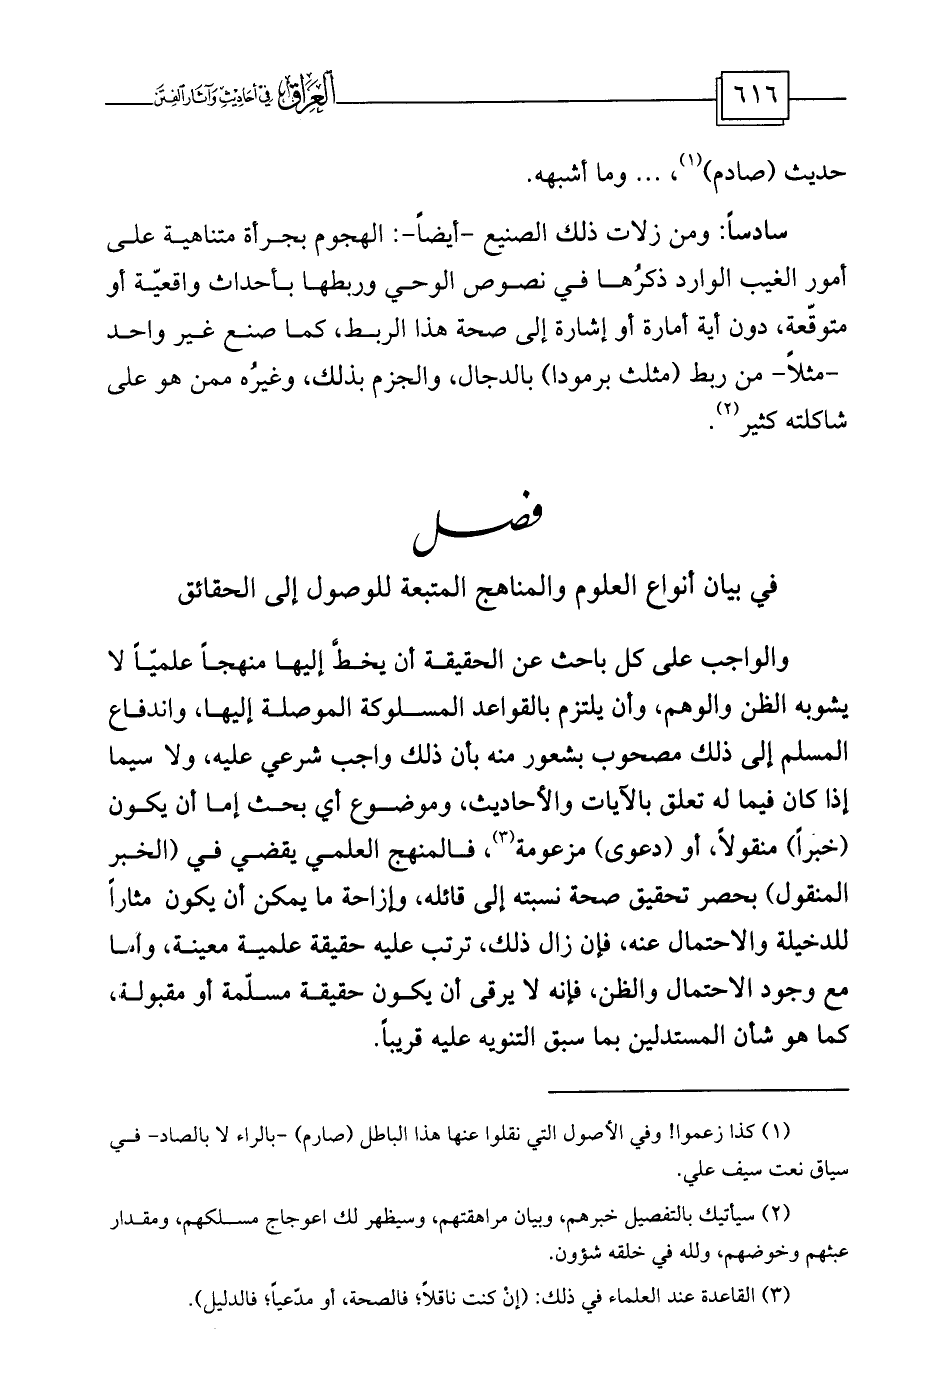 ٦١٦
العراق في أحاديث وآثار الفتن
حديث (صادم)(١)، ... وما أشبهه.
سادساً: ومن زلات ذلك الصنيع -أيضاً-: الهجوم بجرأة متناهية على
أمور الغيب الوارد ذكرُها في نصوص الوحي وربطها بأحداث واقعيّة أو
متوقّعة، دون أية أمارة أو إشارة إلى صحة هذا الربط، كما صنع غير واحد
-مثلاً- من ربط (مثلث برمودا) بالدجال، والجزم بذلك، وغيرُه ممن هو على
شاكلته كثير(٢).
فصل
في بيان أنواع العلوم والمناهج المتبعة للوصول إلى الحقائق
والواجب على كل باحث عن الحقيقة أن يخطَّ إليها منهجاً علميّاً لا
يشوبه الظن والوهم، وأن يلتزم بالقواعد المسلوكة الموصلة إليها، واندفاع
المسلم إلى ذلك مصحوب بشعور منه بأن ذلك واجب شرعي عليه، ولا سيما
إذا كان فيما له تعلق بالآيات والأحاديث، وموضوع أي بحث إما أن يكون
(خبراً) منقولاً، أو (دعوى) مزعومة(٣)، فالمنهج العلمي يقضي في (الخبر
المنقول) بحصر تحقيق صحة نسبته إلى قائله، وإزاحة ما يمكن أن يكون مثاراً
للدخيلة والاحتمال عنه، فإن زال ذلك، ترتب عليه حقيقة علمية معينة، وأما
مع وجود الاحتمال والظن، فإنه لا يرقى أن يكون حقيقة مسلّمة أو مقبولة،
كما هو شأن المستدلين بما سبق التنويه عليه قريباً.
(١) كذا زعموا! وفي الأصول التي نقلوا عنها هذا الباطل (صارم) -بالراء لا بالصاد- في
سياق نعت سيف علي.
(٢) سيأتيك بالتفصيل خبرهم، وبيان مراهقتهم، وسيظهر لك اعوجاج مسلكهم، ومقدار
عبثهم وخوضهم، ولله في خلقه شؤون.
(٣) القاعدة عند العلماء في ذلك: (إنْ كنت ناقلاً؛ فالصحة، أو مدّعياً؛ فالدليل).